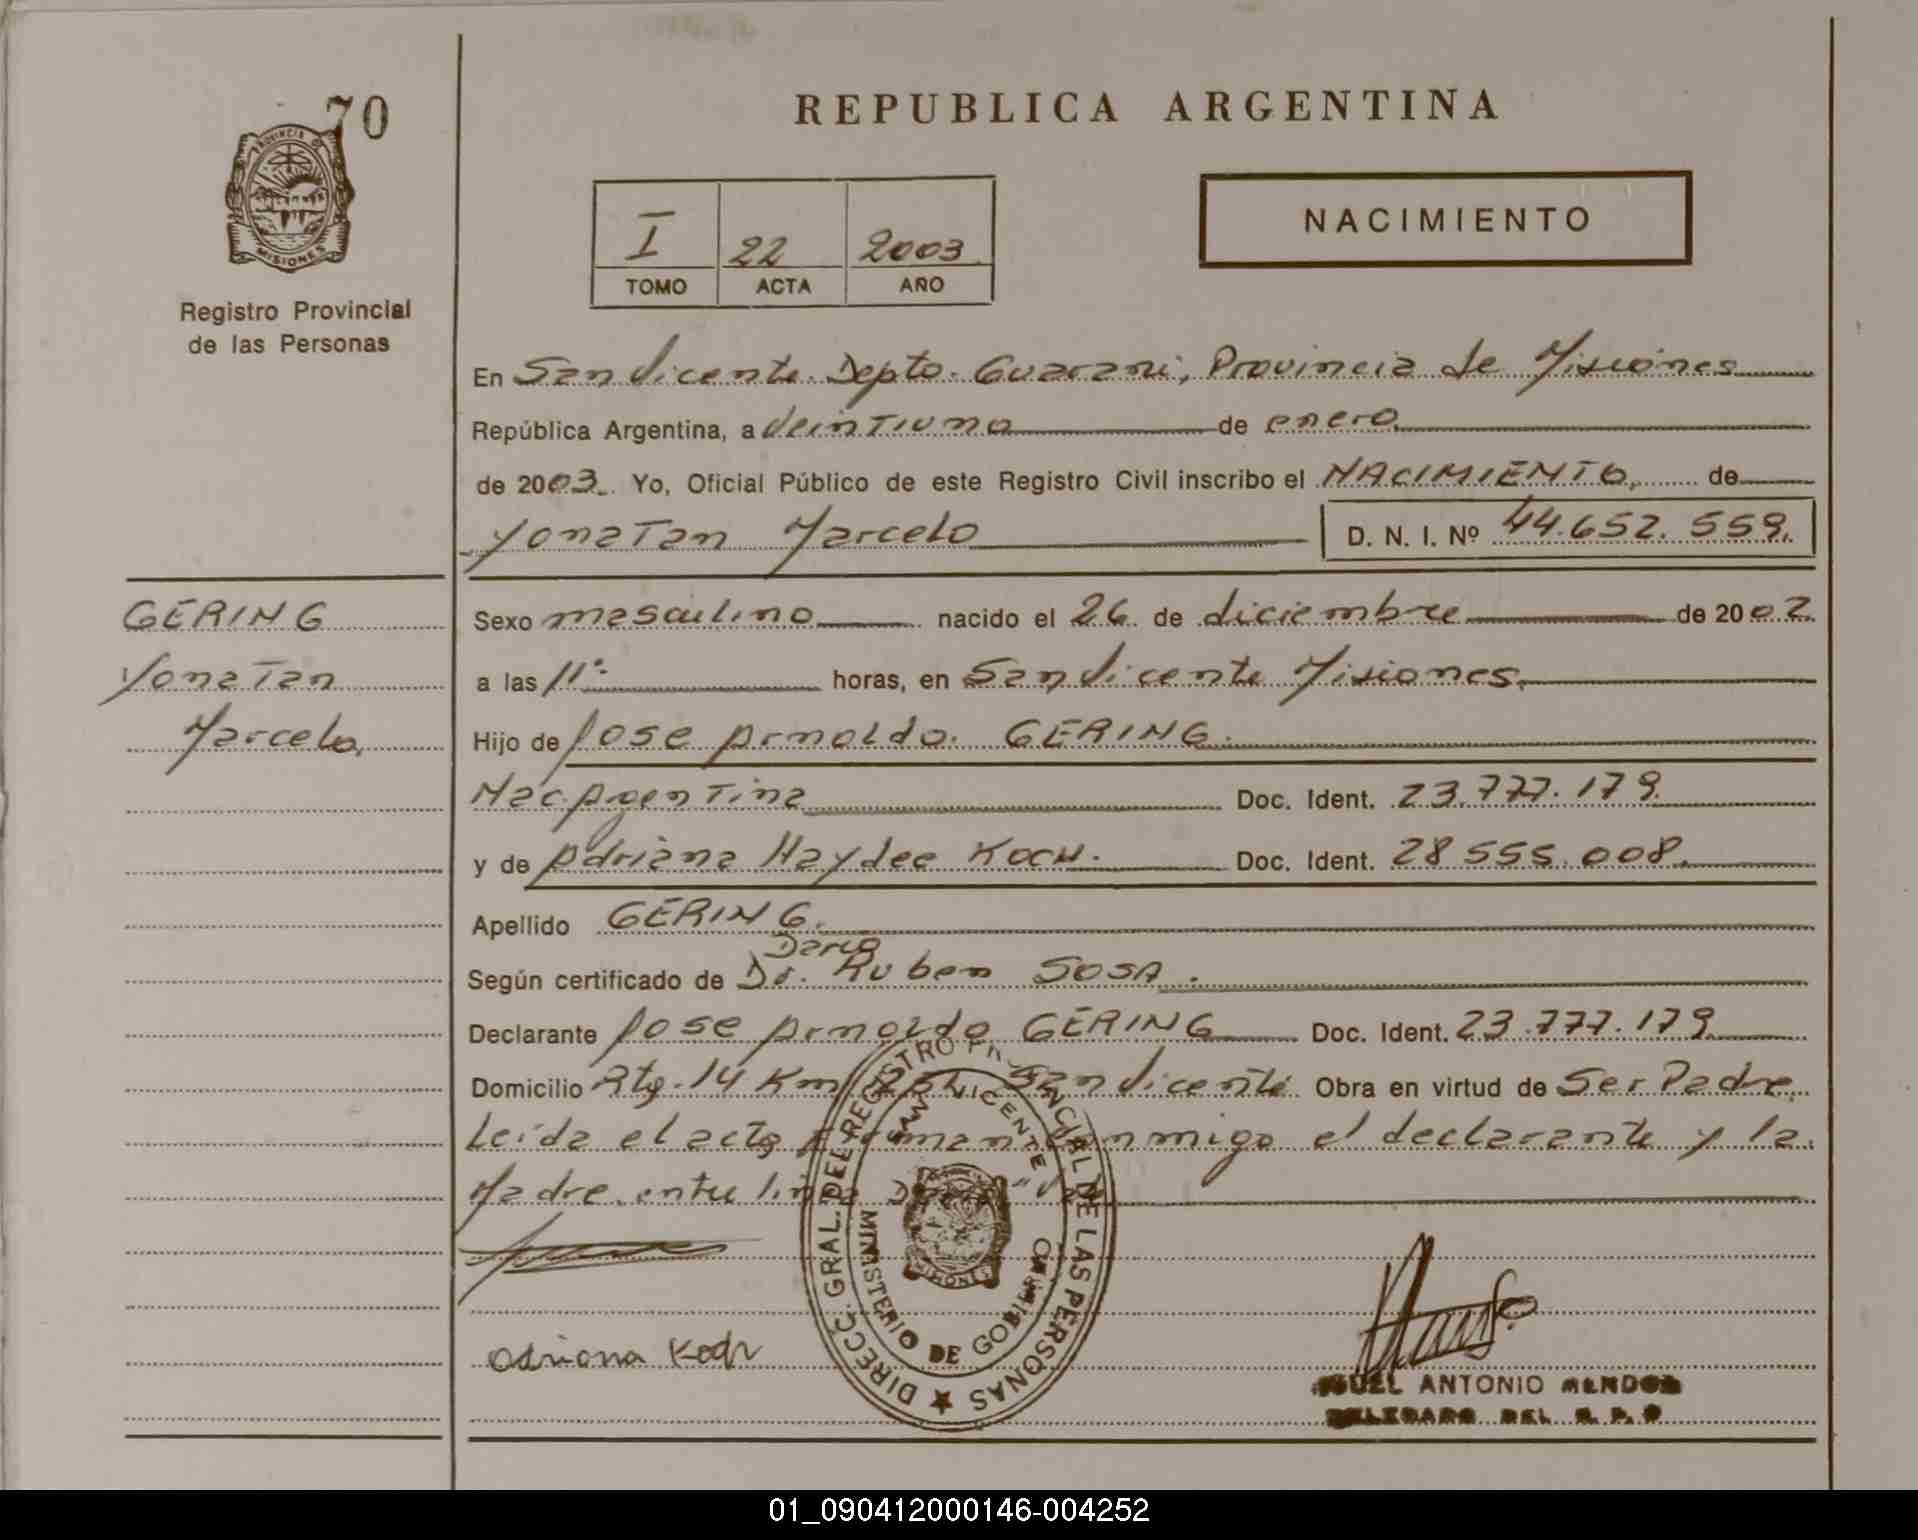 70
PROVINCIA DE
MISIONES
Registro Provincial
de las Personas
REPUBLICA ARGENTINA
I 22 2003
TOMO ACTA AÑO
NACIMIENTO
En San Vicente. Depto. Guarani, Provincia de Misiones
República Argentina, a Veintiuno de enero
de 2003. Yo, Oficial Público de este Registro Civil inscribo el NACIMIENTO, de
Yonatan Marcelo D. N. I. Nº 44.652.559.
GERING
Yonatan
Marcelo,
Sexo masculino nacido el 26 de diciembre de 2002.
a las 11º horas, en San Vicente Misiones.
Hijo de Jose Arnoldo. GERING.
Nac. Argentina Doc. Ident. 23.777.179.
y de Adriana Haydee KOCH. Doc. Ident. 28 555.008.
Apellido GERING.
Dario
Según certificado de Dr. Ruben SOSA.
Declarante Jose Arnoldo GERING Doc. Ident. 23.777.179
Domicilio Rta. 14 Km San Vicente. Obra en virtud de Ser Padre.
Leida el acta Firman conmigo el declarante y la
Madre. entre linea
Adriana Koch
DIRECC. GRAL. DEL REGISTRO PROVINCIAL DE LAS PERSONAS
SAN VICENTE
MISIONES
MINISTERIO DE GOBIERNO
MIGUEL ANTONIO MENDOZA
DELEGADO DEL R. P. P
01_090412000146-004252